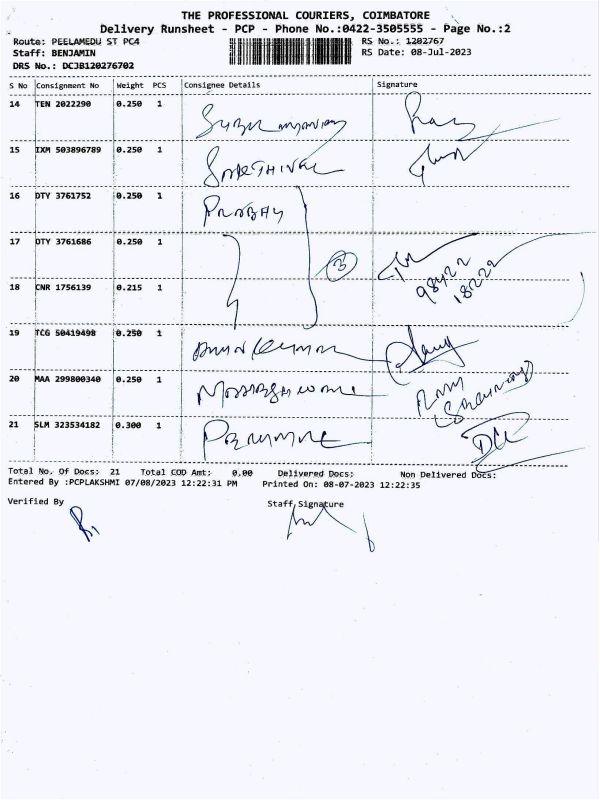 THE PROFESSIONAL COURIERS, COIMBATORE
Delivery Runsheet - PCP - Phone No.:0422-3505555 - Page No.:2
Route: PEELAMEDU ST PC4 RS No.: 1202767
Staff: BENJAMIN RS Date: 08-Jul-2023
DRS No.: DCJB120276702
S No Consignment No Weight PCS Consignee Details Signature
14 TEN 2022290 0.250 1
15 IXM 503896789 0.250 1
16 DTY 3761752 0.250 1 PRABAY
17 DTY 3761686 0.250 1 3 98422
18 CNR 1756139 0.215 1 18222
19 TCG 50419498 0.250 1
20 MAA 299800340 0.250 1
21 SLM 323534182 0.300 1
Total No. Of Docs: 21 Total COD Amt: 0.00 Delivered Docs: Non Delivered Docs:
Entered By :PCPLAKSHMI 07/08/2023 12:22:31 PM Printed On: 08-07-2023 12:22:35
Verified By Staff Signature